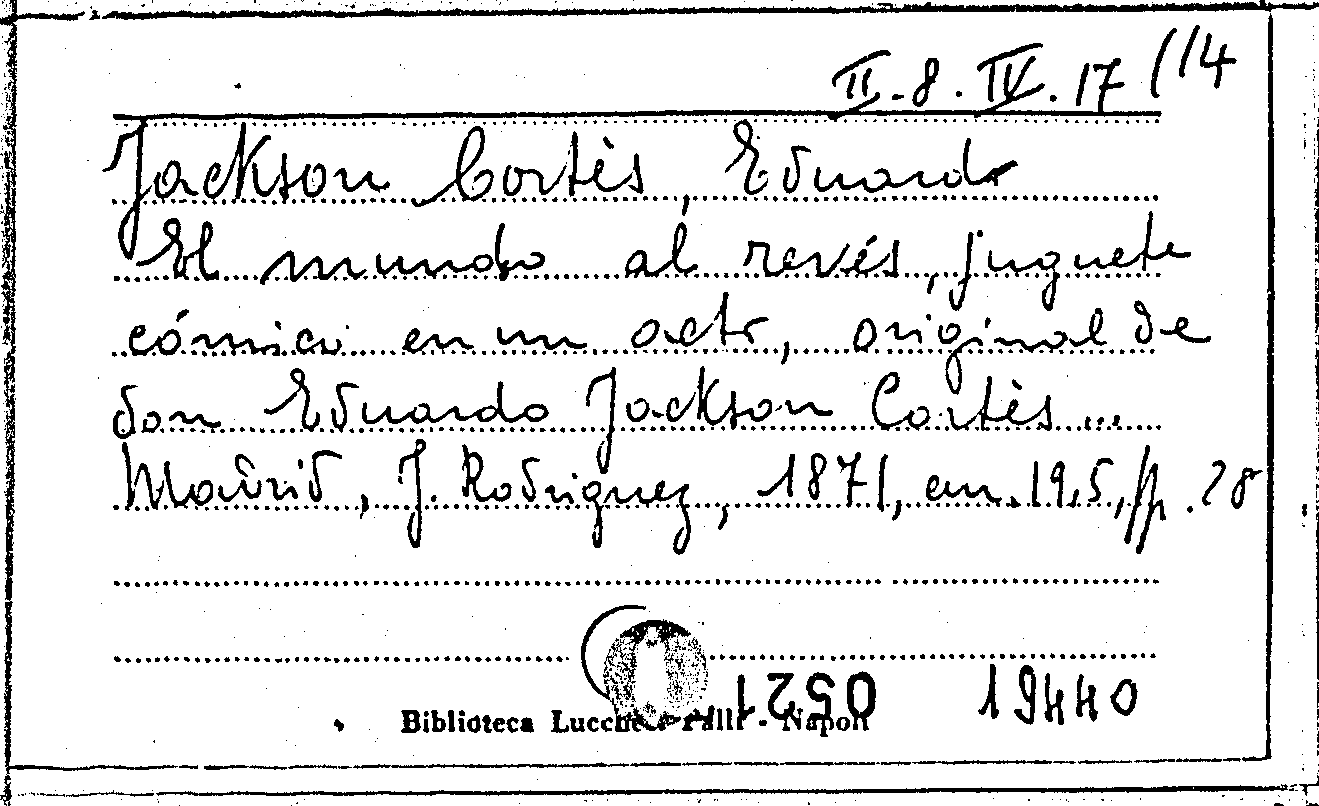 II.8.IV.17(14
Jackson Cortès, Eduardo
El mundo al revés, juguete
cómico en un acto, original de
don Eduardo Jackson Cortès...
Madrid, J. Rodriguez, 1871, cm. 19,5, pp. 28
0521 19440
Biblioteca Lucchesi Palli - Napoli